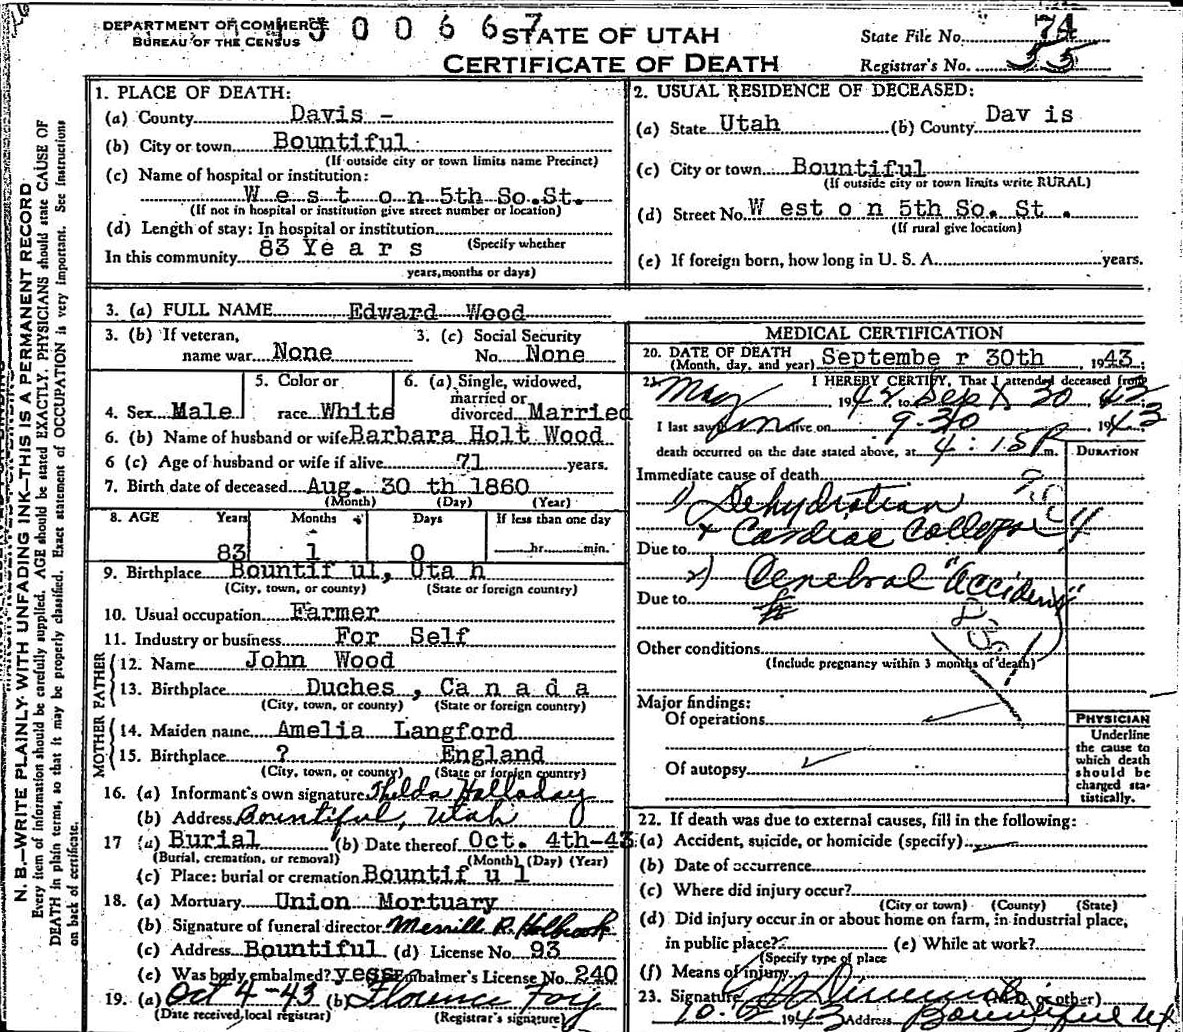 DEPARTMENT OF COMMERCE
BUREAU OF THE CENSUS
500667
STATE OF UTAH
CERTIFICATE OF DEATH
State File No. 74
Registrar's No. 55
N. B.—WRITE PLAINLY WITH UNFADING INK—THIS IS A PERMANENT RECORD
Every item of information should be carefully supplied. AGE should be stated EXACTLY. PHYSICIANS should state CAUSE OF
DEATH in plain terms, so that it may be properly classified. Exact statement of OCCUPATION is very important. See instructions
on back of certificate.
1. PLACE OF DEATH:
(a) County Davis -
(b) City or town Bountiful
(If outside city or town limits name Precinct)
(c) Name of hospital or institution:
West on 5th So. St.
(If not in hospital or institution give street number or location)
(d) Length of stay: In hospital or institution
(Specify whether
In this community 83 Years
years, months or days)
2. USUAL RESIDENCE OF DECEASED:
(a) State Utah (b) County Davis
(c) City or town Bountiful
(If outside city or town limits write RURAL)
(d) Street No. West on 5th So. St.
(If rural give location)
(e) If foreign born, how long in U. S. A. years.
3. (a) FULL NAME Edward Wood
3. (b) If veteran, name war None
3. (c) Social Security No. None
4. Sex Male
5. Color or race White
6. (a) Single, widowed, married or divorced Married
6. (b) Name of husband or wife Barbara Holt Wood
6 (c) Age of husband or wife if alive 71 years.
7. Birth date of deceased Aug. 30 th 1860
(Month) (Day) (Year)
8. AGE Years Months Days If less than one day
83 1 0 hr. min.
9. Birthplace Bountiful, Utah
(City, town, or county) (State or foreign country)
10. Usual occupation Farmer
11. Industry or business For Self
FATHER
12. Name John Wood
13. Birthplace Duches, Canada
(City, town, or county) (State or foreign country)
MOTHER
14. Maiden name Amelia Langford
15. Birthplace ? England
(City, town, or county) (State or foreign country)
16. (a) Informant's own signature Thelda Holladay
(b) Address Bountiful, Utah
17 (a) Burial (b) Date thereof Oct. 4th-43
(Burial, cremation, or removal) (Month) (Day) (Year)
(c) Place: burial or cremation Bountiful
18. (a) Mortuary Union Mortuary
(b) Signature of funeral director Merrill R. Holbrook
(c) Address Bountiful (d) License No. 93
(e) Was body embalmed? yess Embalmer's License No. 240
19. (a) Oct 4-43 (b) Florence Foy
(Date received local registrar) (Registrar's signature)
MEDICAL CERTIFICATION
20. DATE OF DEATH September 30th, 1943
(Month, day, and year)
21. I HEREBY CERTIFY, That I attended deceased from
May 1942, to Sept 30, 43
I last saw him alive on 9-30 1943
death occurred on the date stated above, at 4:15 P m.
DURATION
Immediate cause of death
1) Dehydration
+ Cardiac Collapse
Due to
2) Cerebral "accident"
Due to
Other conditions
(Include pregnancy within 3 months of death)
Major findings:
Of operations
Of autopsy
PHYSICIAN
Underline
the cause to
which death
should be
charged sta-
tistically.
22. If death was due to external causes, fill in the following:
(a) Accident, suicide, or homicide (specify)
(b) Date of occurrence
(c) Where did injury occur?
(City or town) (County) (State)
(d) Did injury occur in or about home on farm, in industrial place,
in public place? (e) While at work?
(Specify type of place
(f) Means of injury
23. Signature (M.D. or other)
1943 Address Bountiful Ut